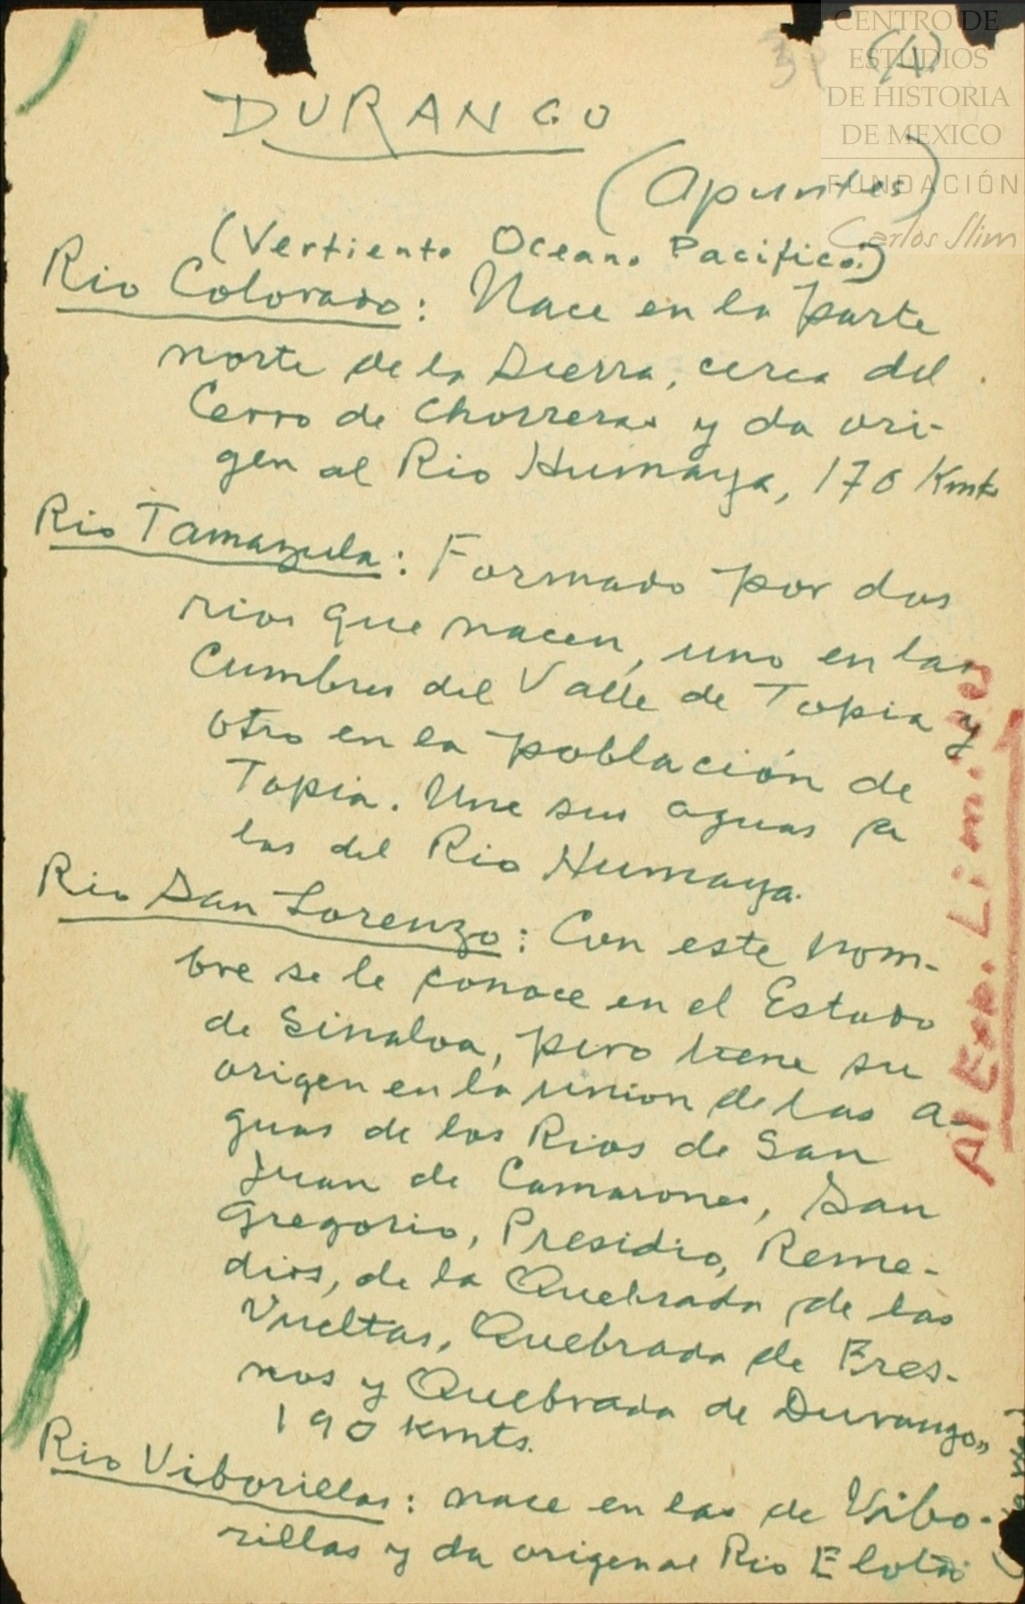 CENTRO DE
ESTUDIOS
DE HISTORIA
DE MEXICO
FUNDACIÓN
Carlos Slim
(A)
DURANGO
(Apuntes)
(Vertiente Oceano Pacifico.)
Rio Colorado: Nace en la parte
norte de la Sierra, cerca del
Cerro de Chorreras y da ori-
gen al Rio Humaya, 170 Kmts
Rio Tamazula: Formado por dos
rios que nacen, uno en las
Cumbres del Valle de Topia y
otro en la población de
Topia. Une sus aguas a
las del Rio Humaya.
Rio San Lorenzo: Con este nom-
bre se le conoce en el Estado
de Sinaloa, pero tiene su
origen en la union de las a-
guas de los Rios de San
Juan de Camarones, San
Gregorio, Presidio, Reme-
dios, de la Quebrada de las
Vueltas, Quebrada de Fres-
nos y Quebrada de Durango,,
190 kmts.
Rio Viborillas: nace en las de Vibo-
rillas y da origen al Rio Elota
Al Exp. Lim.